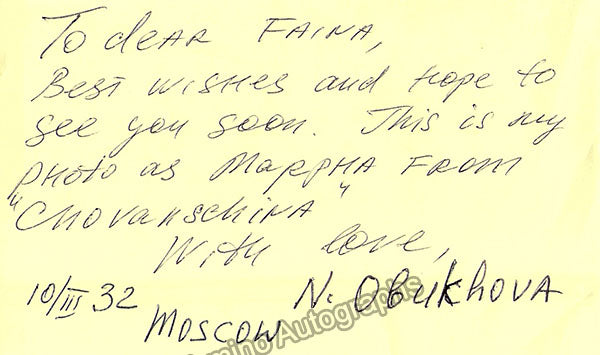 To dear Faina,
Best wishes and hope to
see you soon. This is my
photo as Mappha from
"Chovanschina"
With love,
10/III 32 N. Obukhova
Moscow
Tamino Autographs